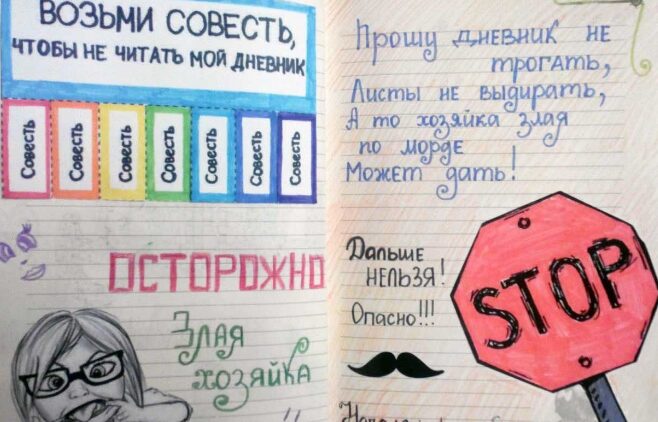 ВОЗЬМИ СОВЕСТЬ,
ЧТОБЫ НЕ ЧИТАТЬ МОЙ ДНЕВНИК
Совесть
Совесть
Совесть
Совесть
Совесть
Совесть
Совесть
ОСТОРОЖНО
Злая
хозяйка
!!
Прошу дневник не
трогать,
Листы не выдирать,
А то хозяйка злая
по морде
Может дать!
Дальше
нельзя!
Опасно!!!
STOP